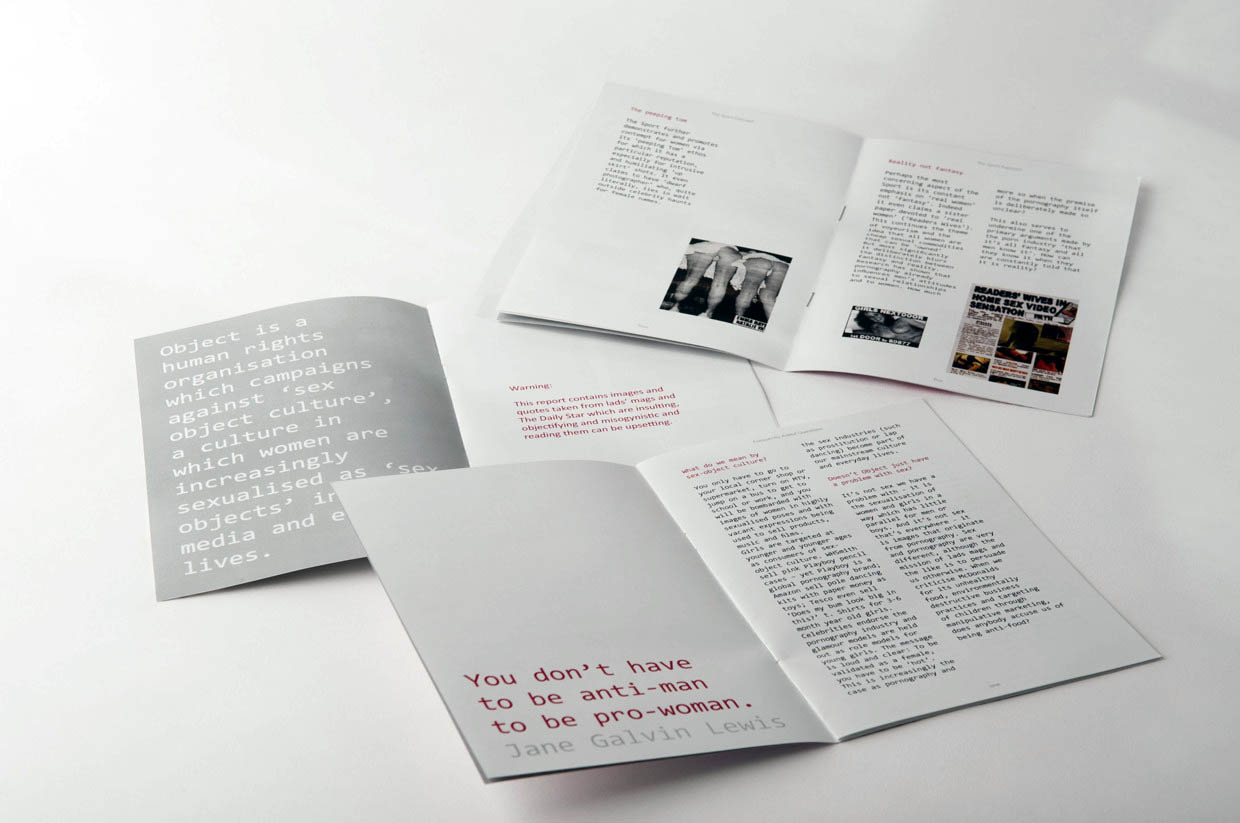 The peeping tom
The Sport further
demonitrates and promotes
contempt for women via
its 'peeping Tom' ethos
for which it has a
particular reputation,
especially for intrusive
and humiliating 'up
skirt' shots. It even
claims to have 'dwarf
photographer' who, quite
literally, lies in wait
outside celebrity haunts
for female names.
Reality not fantasy
Perhaps the most
concerning aspect of the
Sport is its constant
emphasis on 'real women'
not 'fantasy'. Indeed
it even claims a sister
paper devoted to 'real
women' ('Readers Wives').
This continues the theme
of voyeurism and the
idea that all women are
cheap sexual commodities
that can be 'owned'.
But most significantly
it deliberately blurs
the distinction between
fantasy and reality.
Research has shown that
pornography already
influences men's attitudes
to sexual relationships
and to women. How much
more so when the premise
of the pornography itself
is deliberately made so
unclear?
This also serves to
undermine one of the
primary arguments made by
the porn industry 'that
it's all fantasy and all
men know it'. How can
they know it when they
are constantly told that
it is reality?
GIRLS NEXTDOOR
READERS' WIVES IN
HOME SEX VIDEO
SENSATION
Object is a
human rights
organisation
which campaigns
against 'sex
object culture',
a culture in
which women are
increasingly
sexualised as 'sex
objects' in
media and e
lives.
Warning:
This report contains images and
quotes taken from lads' mags and
The Daily Star which are insulting,
objectifying and misogynistic and
reading them can be upsetting.
You don't have
to be anti-man
to be pro-woman.
Jane Galvin Lewis
What do we mean by
sex-object culture?
You only have to go to
your local corner shop or
supermarket, turn on MTV,
jump on a bus to get to
school or work, and you
will be bombarded with
images of women in highly
sexualised poses and with
vacant expressions being
used to sell products,
music and films.
Girls are targeted at
younger and younger ages
as consumers of sex-
object culture. WHSmith
sell pink Playboy pencil
cases - yet Playboy is a
global pornography brand.
Amazon sell pole dancing
kits with paper money as
toys; Tesco even sell
'Does my bum look big in
this?' t- Shirts for 3-6
month year old girls.
Celebrities endorse the
pornography industry and
glamour models are held
out as role models for
young girls. The message
is loud and clear: To be
validated as a female,
you have to be 'hot'.
This is increasingly the
case as pornography and
the sex industries (such
as prostitution or lap
dancing) become part of
our mainstream culture
and everyday lives.
Doesn't Object just have
a problem with sex?
It's not sex we have a
problem with - it's
the sexualisation of
women and girls in a
way which has little
parallel for men or
boys. And it's not sex
that's everywhere - it
is images that originate
from pornography. Sex
and pornography are very
different, although the
mission of lads mags and
the like is to persuade
us otherwise. When we
criticise McDonalds
for its unhealthy
food, environmentally
destructive business
practices and targeting
of children through
manipulative marketing,
does anybody accuse us of
being anti-food?